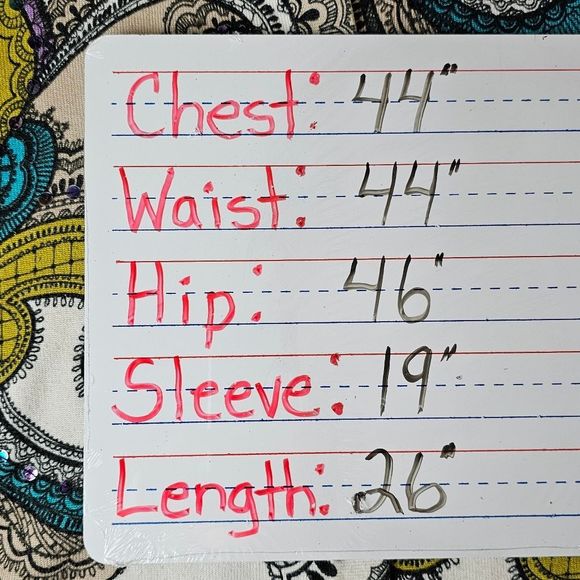 Chest: 44"
Waist: 44"
Hip: 46"
Sleeve: 19"
Length: 26"